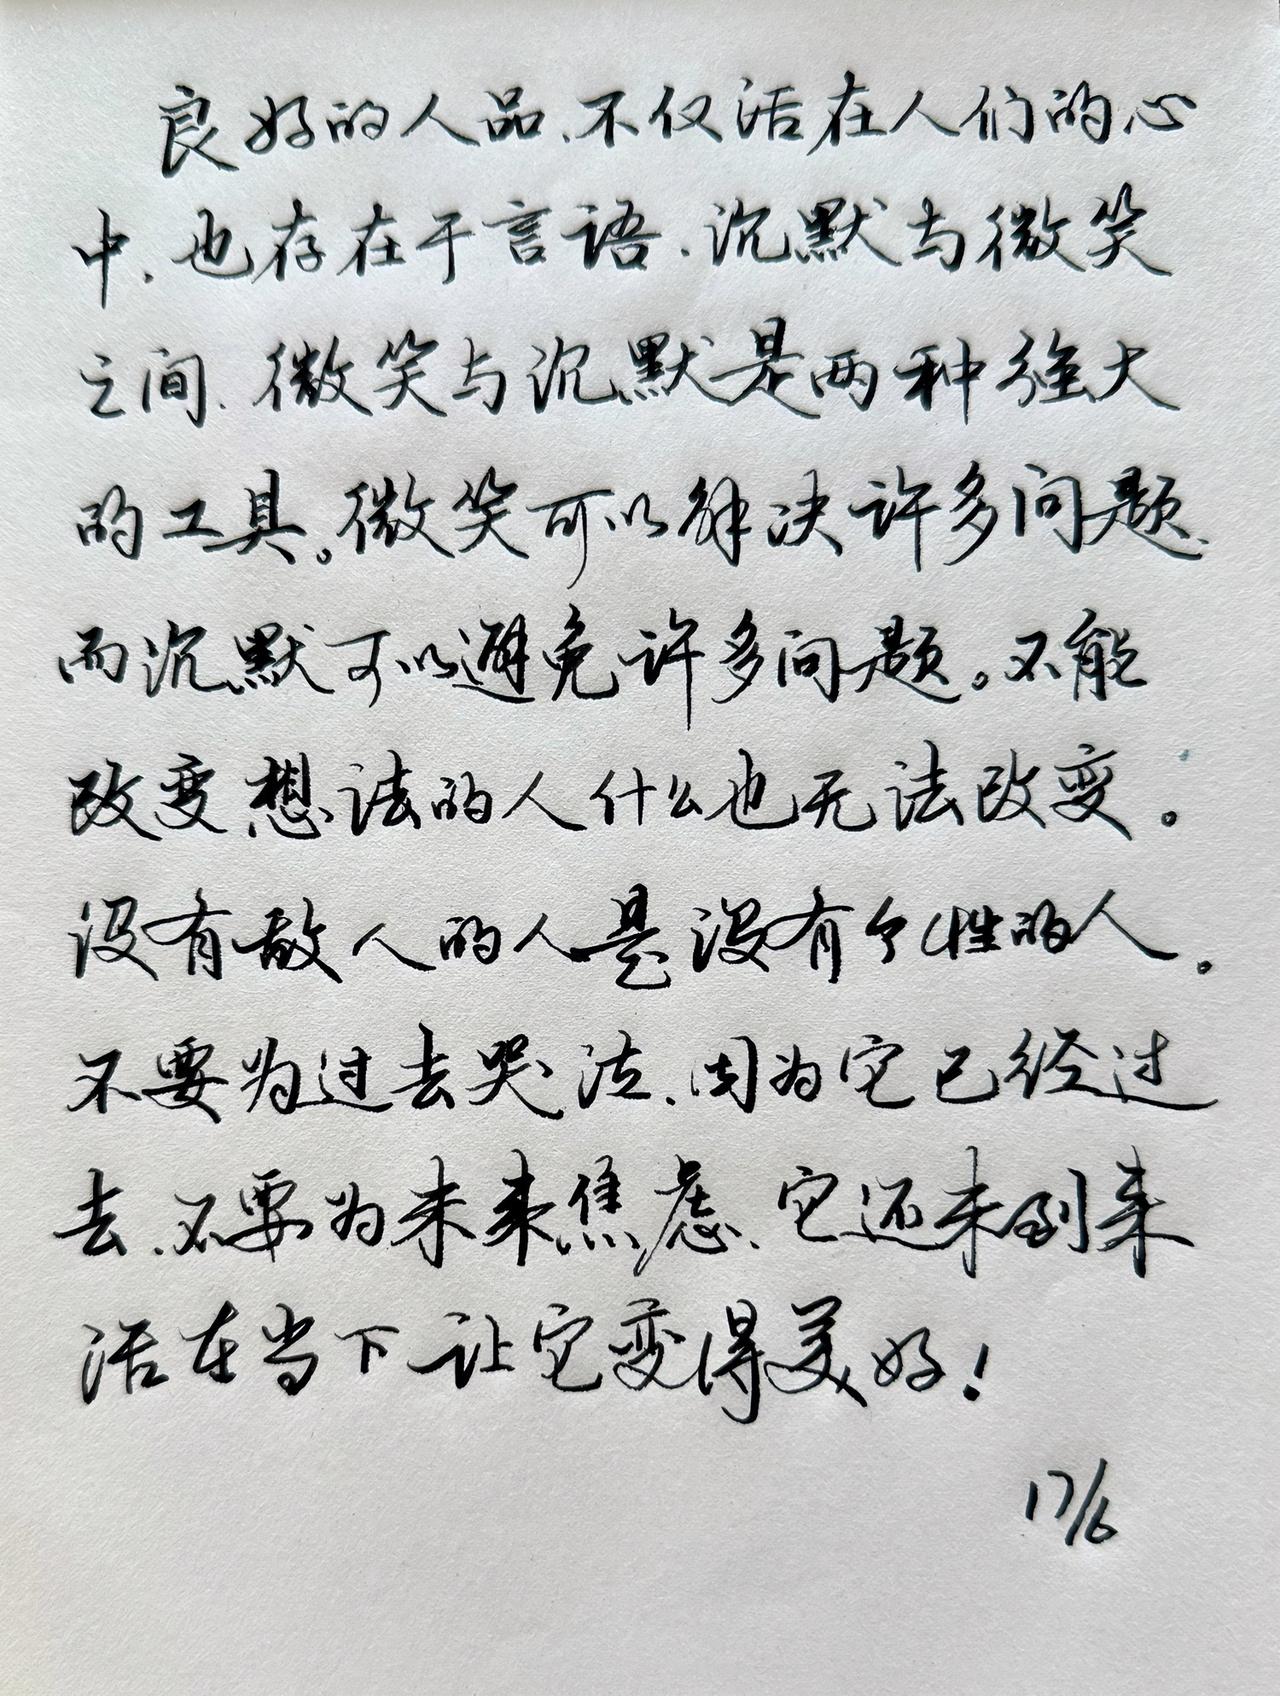 良好的人品、不仅活在人们的心
中、也存在于言语、沉默与微笑
之间、微笑与沉默是两种强大
的工具。微笑可以解决许多问题、
而沉默可以避免许多问题。不能
改变想法的人什么也无法改变。
没有敌人的人是没有个性的人。
不要为过去哭泣、因为它已经过
去、不要为未来焦虑、它还未到来
活在当下让它变得美好!
17/6